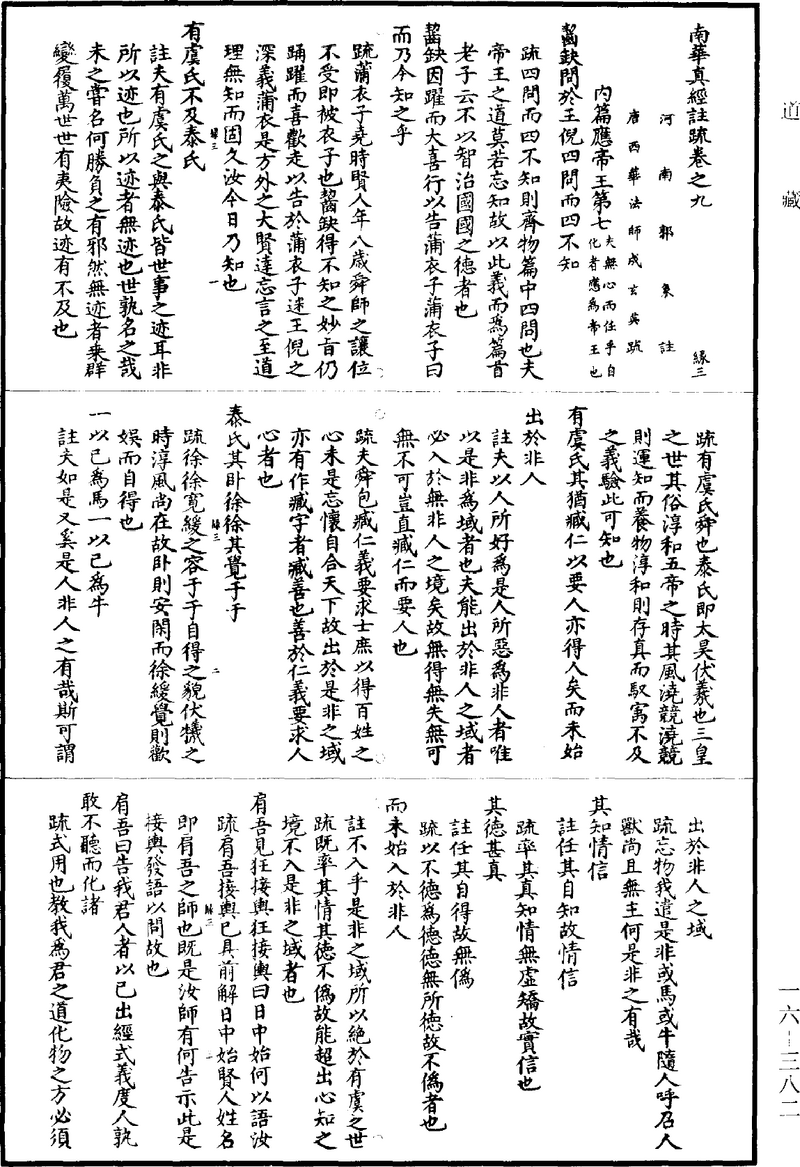 道藏
南華真經註疏卷之九　緣三
河南郭象註
唐西華法師成玄英疏
內篇應帝王第七夫無心而任乎自化者應為帝王也
齧缺問於王倪四問而四不知
疏四問而四不知則齊物篇中四問也夫
帝王之道莫若忘知故以此義而為篇首
老子云不以智治國國之德者也
齧缺因躍而大喜行以告蒲衣子蒲衣子曰
而乃今知之乎
疏蒲衣子堯時賢人年八歲舜師之讓位
不受即被衣子也齧缺得不知之妙旨仍
踊躍而喜歡走以告於蒲衣子述王倪之
深義蒲衣是方外之大賢達忘言之至道
理無知而固久汝今日乃知也
有虞氏不及泰氏
註夫有虞氏之與泰氏皆世事之迹耳非
所以迹也所以迹者無迹也世孰名之哉
未之嘗名何勝負之有邪然無迹者乘群
變履萬世世有夷險故迹有不及也
緣三　一
疏有虞氏舜也泰氏即太昊伏羲也三皇
之世其俗淳和五帝之時其風澆競澆競
則運知而養物淳和則存真而馭寓不及
之義驗此可知也
有虞氏其猶臧仁以要人亦得人矣而未始
出於非人
註夫以人所好為是人所惡為非人者唯
以是非為域者也夫能出於非人之域者
必入於無非人之境矣故無得無失無可
無不可豈直臧仁而要人也
疏夫舜包臧仁義要求士庶以得百姓之
心未是忘懷自合天下故出於是非之域
亦有作臧字者臧善也善於仁義要求人
心者也
泰氏其卧徐徐其覺于于
疏徐徐寬緩之容于于自得之貌伏犧之
時淳風尚在故卧則安閑而徐緩覺則歡
娛而自得也
一以己為馬一以己為牛
註夫如是又奚是人非人之有哉斯可謂
緣三　二
出於非人之域
疏忘物我遣是非或馬或牛隨人呼召人
獸尚且無主何是非之有哉
其知情信
註任其自知故情信
疏率其真知情無虛矯故實信也
其德甚真
註任其自得故無偽
疏以不德為德德無所德故不偽者也
而未始入於非人
註不入乎是非之域所以絕於有虞之世
疏既率其情其德不偽故能超出心知之
境不入是非之域者也
肩吾見狂接輿狂接輿曰日中始何以語汝
疏肩吾接輿已具前解日中始賢人姓名
即肩吾之師也既是汝師有何告示此是
接輿發語以問故也
肩吾曰告我君人者以己出經式義度人孰
敢不聽而化諸
疏式用也教我為君之道化物之方必須
緣三
一六-三八二